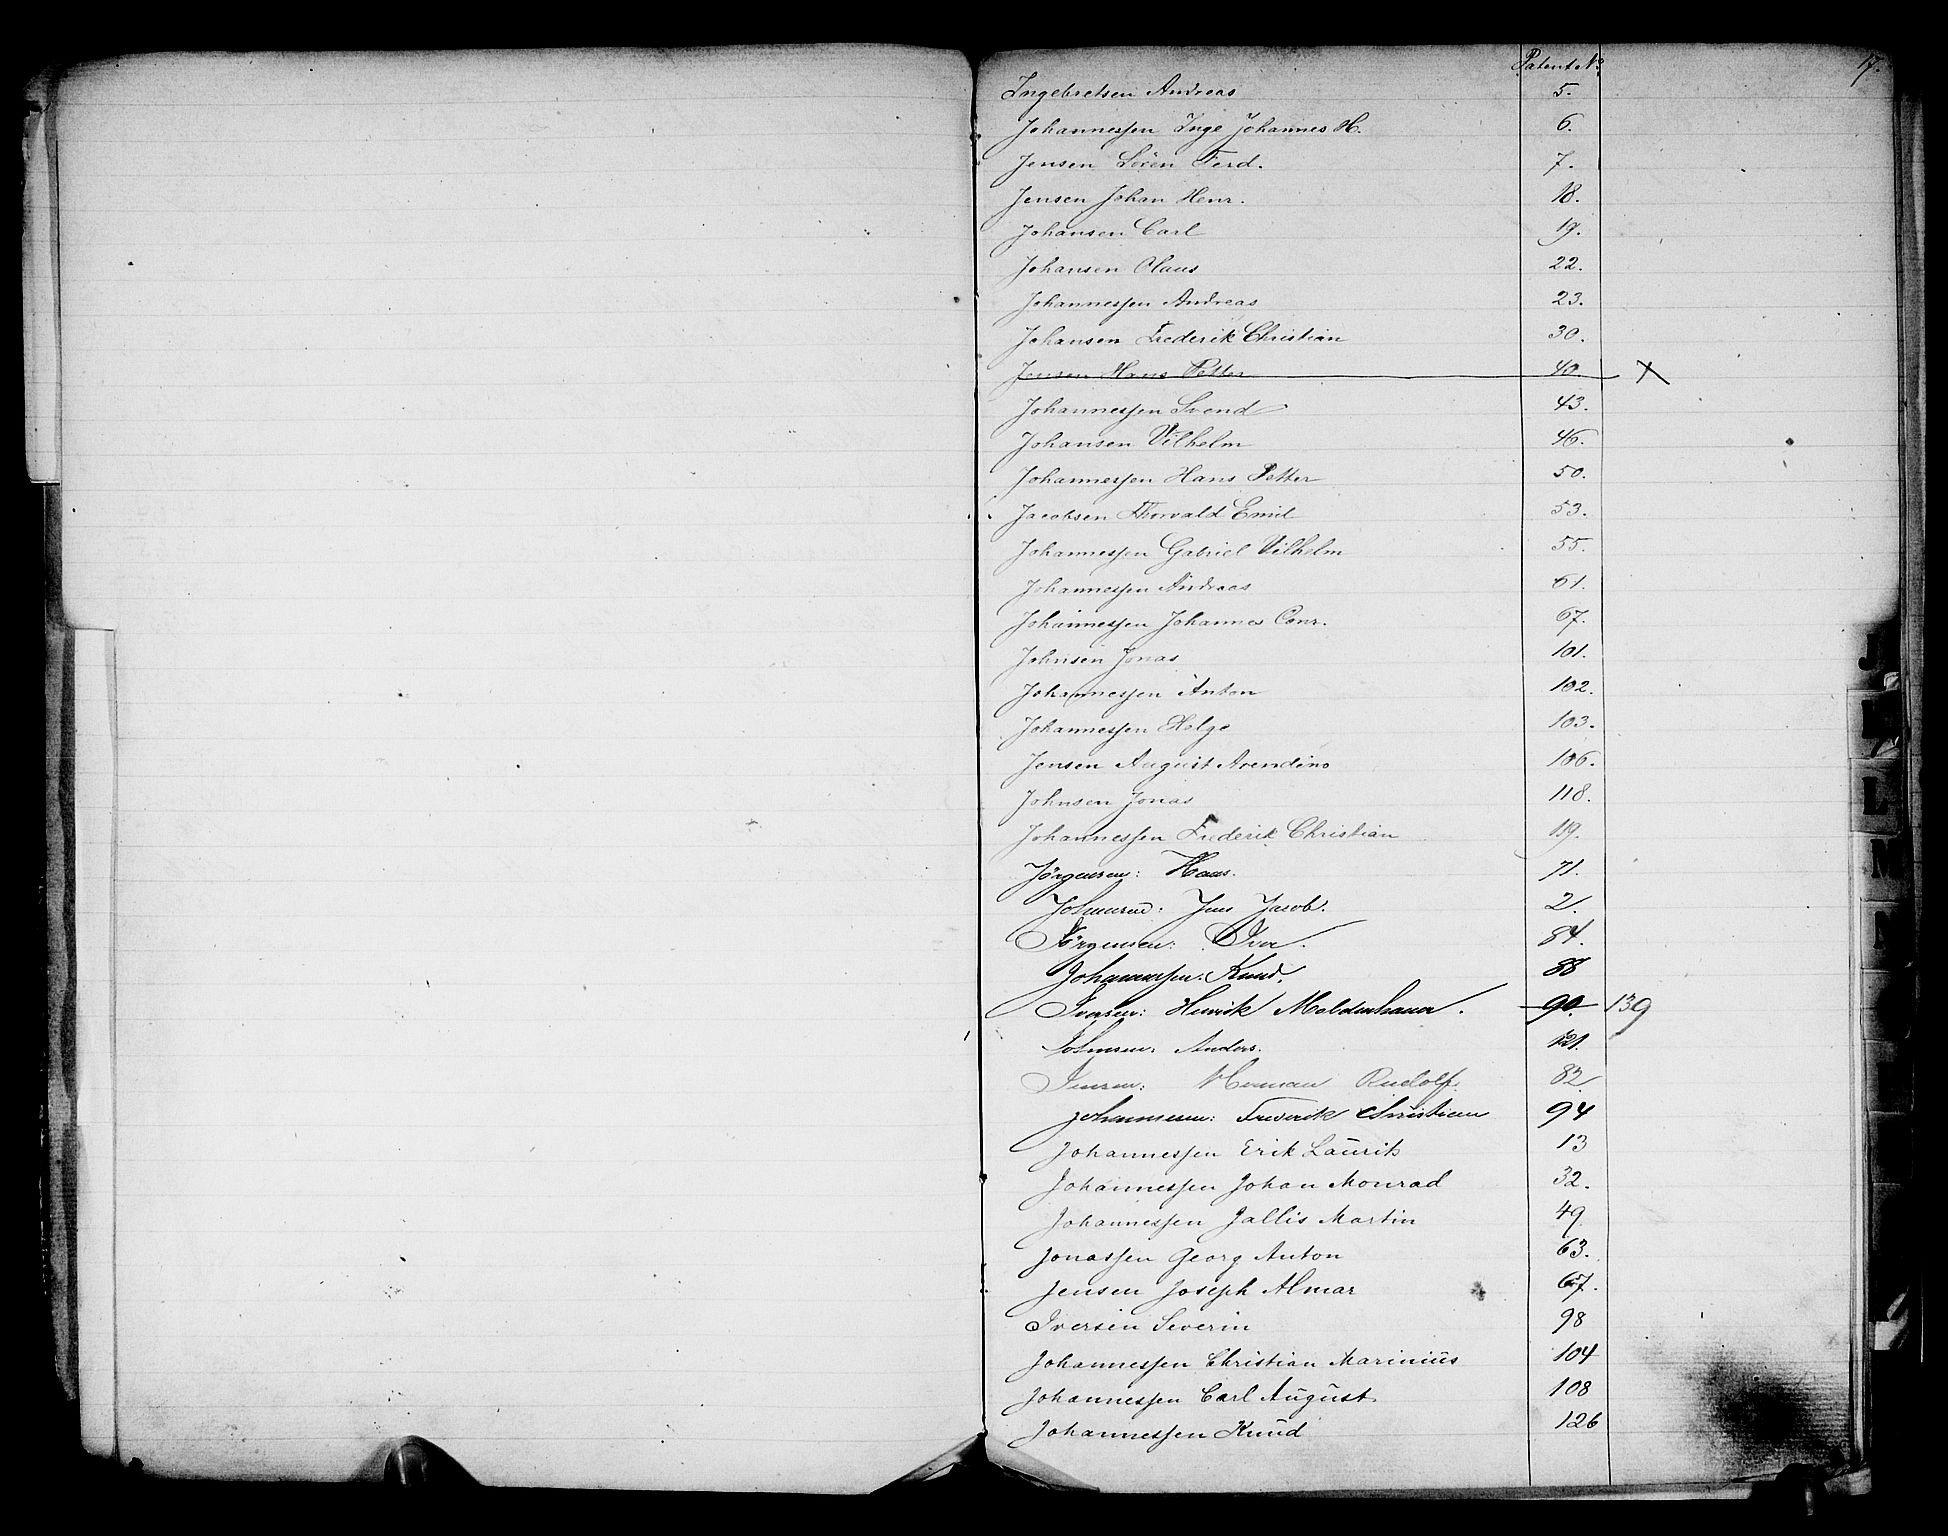 Patent No 17.
Ingebretsen Andreas 5.
Johannessen Inge Johannes H. 6.
Jensen Sören Ferd. 7.
Jensen Johan Henr. 18.
Johansen Carl 19.
Johansen Olaus 22.
Johannessen Andreas 23.
Johansen Frederik Christian 30.
Jensen Hans Petter 40. X
Johannessen Svend 43.
Johansen Vilhelm 46.
Johannessen Hans Petter 50.
Jacobsen Thorvald Emil 53.
Johannessen Gabriel Vilhelm 55.
Johannessen Andreas 61.
Johannessen Johannes Conr. 67.
Johnsen Jonas 101.
Johannessen Anton 102.
Johannessen Helge 103.
Jensen August Arendino 106.
Johnsen Jonas 118.
Johannessen Frederik Christian 119.
Jörgensen: Hans. 71.
Johnsen: Jens Jacob. 2.
Jörgensen: Iver. 84.
Johannessen: Knud. 88
Iversen: Henrik Moldenhauer. 90. 139
Johnsen: Anders. 121.
Jensen: Herman Rudolf. 82
Johannesen: Frederik Christian 94
Johannessen Erik Laurits 13
Johannessen Johan Monrad 32.
Johannessen Jallis Martin 49
Jonassen Georg Anton 63.
Jensen Joseph Almar 67.
Iversen Severin 98
Johannessen Christian Marinius 104
Johannessen Carl August. 108
Johannessen Knud 126
J
L
M
N